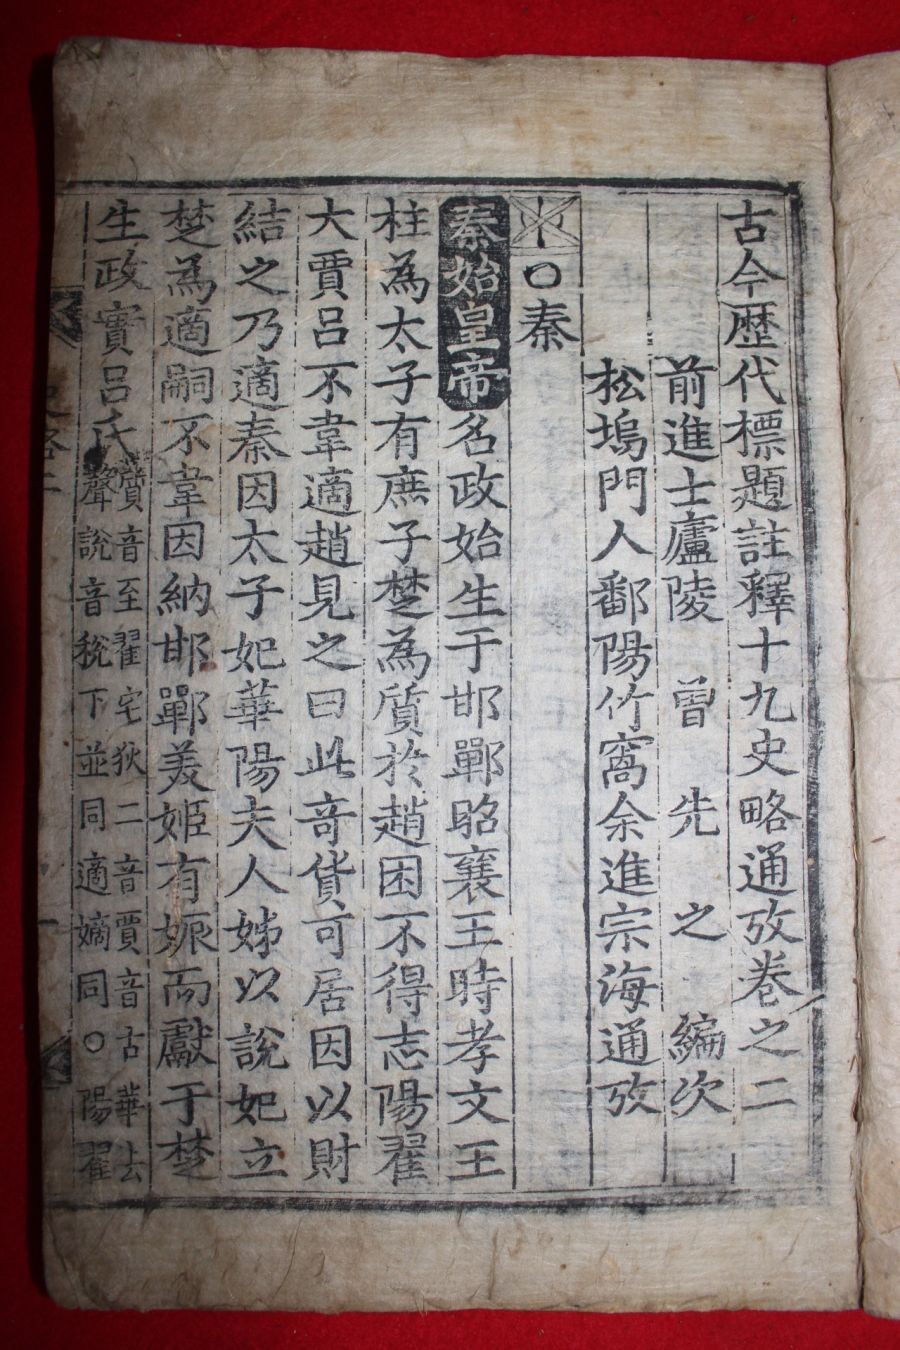 古今歴代標題註釋十九史略通攷卷之二
前進士廬陵曾先之編次
松塢門人鄱陽竹窩余進宗海通攷
○秦
秦始皇帝名政始生于邯鄲昭襄王時孝文王
柱為太子有庶子楚為質於趙困不得志陽翟
大賈呂不韋適趙見之曰此奇貨可居因以財
結之乃適秦因太子妃華陽夫人姊以說妃立
楚為適嗣不韋因納邯鄲美姬有娠而獻于楚
生政實呂氏
質音至翟宅狄二音賈音古華去
聲說音稅下並同適嫡同○陽翟